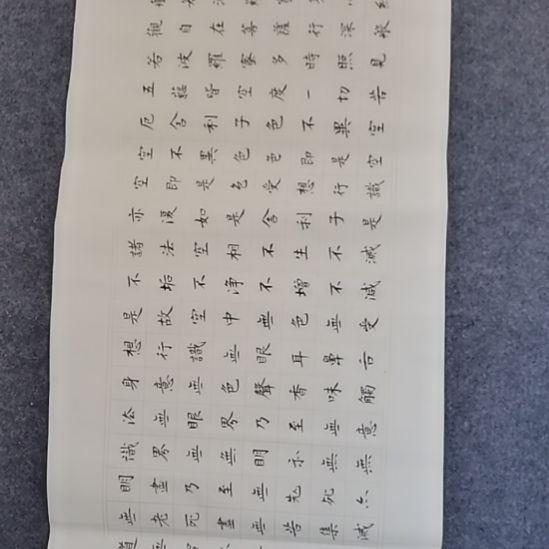 觀自在菩薩行深般
若波羅蜜多時照見
五蘊皆空度一切苦
厄舍利子色不異空
空不異色色即是空
空即是色受想行識
亦復如是舍利子是
諸法空相不生不滅
不垢不淨不增不減
是故空中無色無受
想行識無眼耳鼻舌
身意無色聲香味觸
法無眼界乃至無意
識界無無明亦無無
明盡乃至無老死亦
無老死盡無苦集滅
道